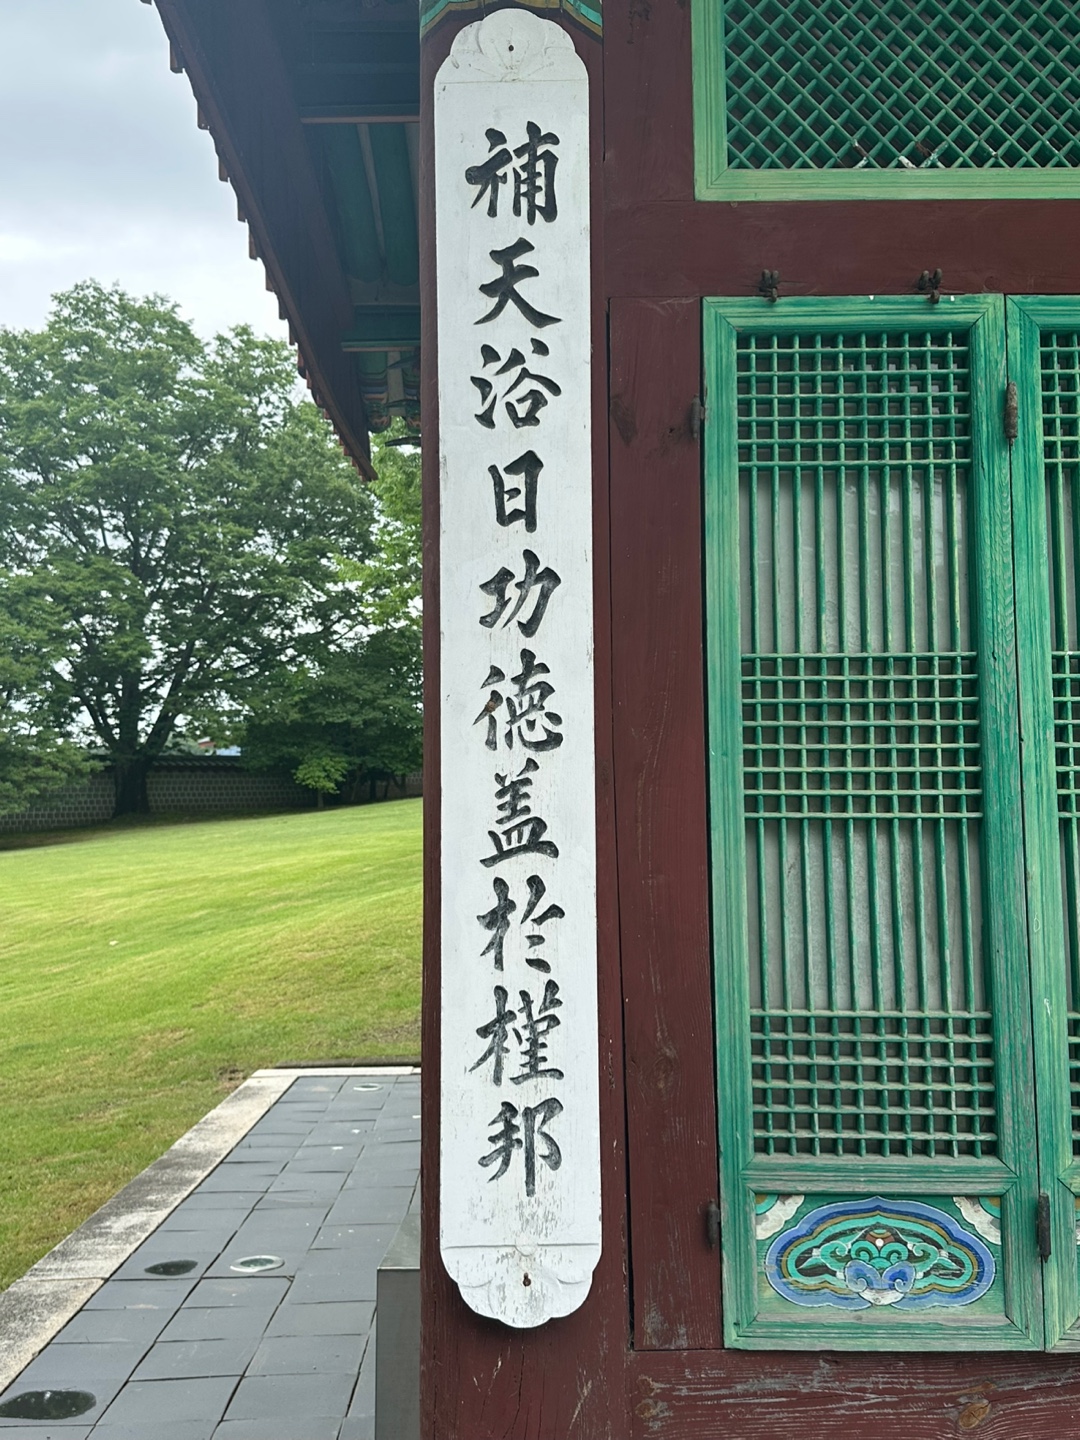 補天浴日功德盖於槿邦